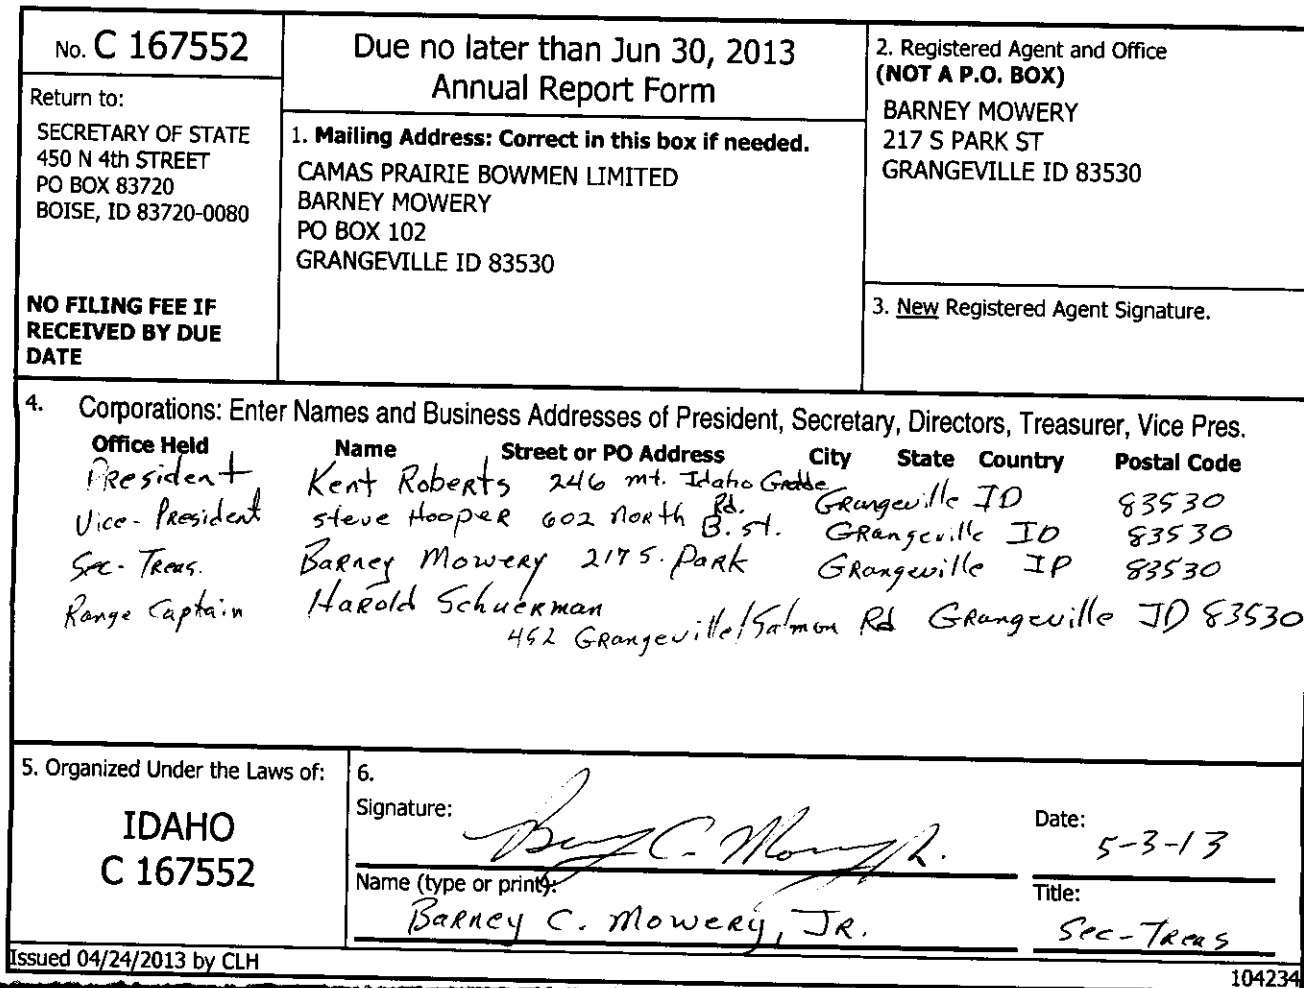 No. C 167552
Return to:
SECRETARY OF STATE
450 N 4th STREET
PO BOX 83720
BOISE, ID 83720-0080
NO FILING FEE IF
RECEIVED BY DUE
DATE
Due no later than Jun 30, 2013
Annual Report Form
1. Mailing Address: Correct in this box if needed.
CAMAS PRAIRIE BOWMEN LIMITED
BARNEY MOWERY
PO BOX 102
GRANGEVILLE ID 83530
2. Registered Agent and Office
(NOT A P.O. BOX)
BARNEY MOWERY
217 S PARK ST
GRANGEVILLE ID 83530
3. New Registered Agent Signature.
4. Corporations: Enter Names and Business Addresses of President, Secretary, Directors, Treasurer, Vice Pres.
Office Held Name Street or PO Address City State Country Postal Code
President Kent Roberts 246 mt. Idaho Grade Rd. Grangeville ID 83530
Vice-President Steve Hooper 602 North B. st. Grangeville ID 83530
Sec-Treas. Barney Mowery 217 S. Park Grangeville ID 83530
Range Captain Harold Schuerman
452 Grangeville/Salmon Rd Grangeville ID 83530
5. Organized Under the Laws of:
IDAHO
C 167552
6.
Signature: Barney C. Mowery Jr.
Date: 5-3-13
Name (type or print):
Barney C. Mowery, JR.
Title:
Sec-Treas
Issued 04/24/2013 by CLH
104234